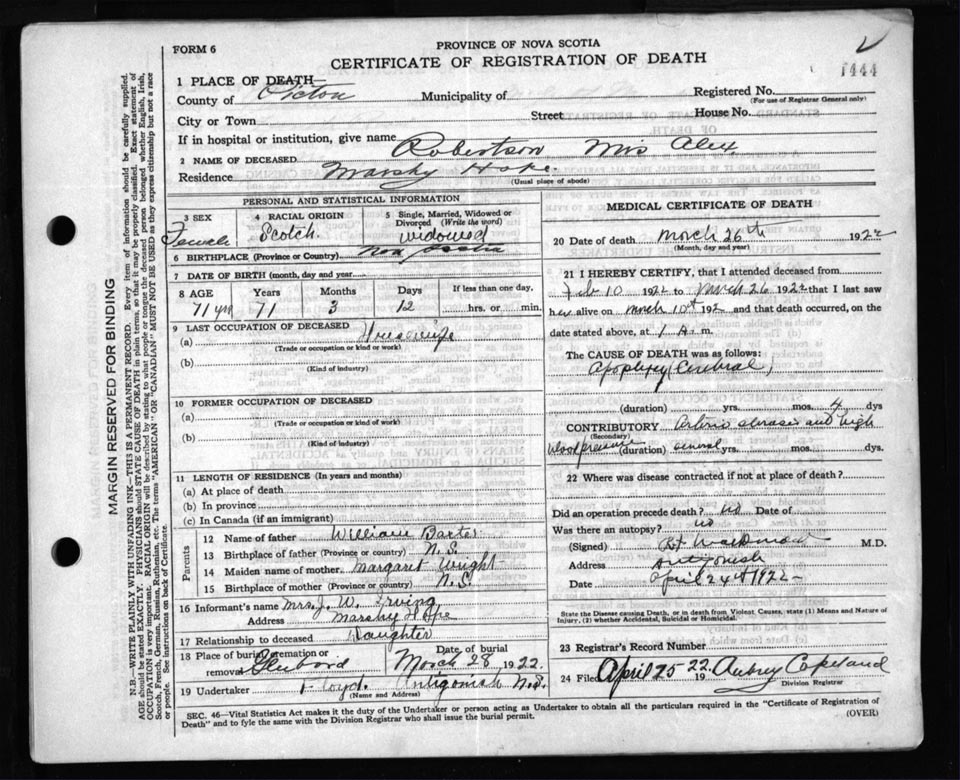 FORM 6
PROVINCE OF NOVA SCOTIA
CERTIFICATE OF REGISTRATION OF DEATH
1444
1 PLACE OF DEATH—
County of Pictou Municipality of Registered No.
(For use of Registrar General only)
City or Town Street House No.
If in hospital or institution, give name
2 NAME OF DECEASED Robertson Mrs Alex.
Residence Marshy Hope.
(Usual place of abode)
PERSONAL AND STATISTICAL INFORMATION
3 SEX Female
4 RACIAL ORIGIN Scotch.
5 Single, Married, Widowed or Divorced (Write the word) widowed
6 BIRTHPLACE (Province or Country) Nova Scotia
7 DATE OF BIRTH (month, day and year)
8 AGE Years Months Days If less than one day,
71 yrs 71 3 12 hrs. or min.
9 LAST OCCUPATION OF DECEASED
(a) Housewife
(Trade or occupation or kind or work)
(b)
(Kind of industry)
10 FORMER OCCUPATION OF DECEASED
(a)
(Trade or occupation or kind of work)
(b)
(Kind of industry)
11 LENGTH OF RESIDENCE (in years and months)
(a) At place of death
(b) In province
(c) In Canada (if an immigrant)
Parents
12 Name of father William Barter
13 Birthplace of father (Province or country) N.S.
14 Maiden name of mother Margaret Wright
15 Birthplace of mother (Province or country) N.S.
16 Informant's name Mrs. J. W. Irving
Address Marshy Hope
17 Relationship to deceased Daughter
18 Place of burial, cremation or removal Date of burial
March 28 1922.
19 Undertaker Floyd. Antigonish N.S.
(Name and Address)
MEDICAL CERTIFICATE OF DEATH
20 Date of death March 26th 1922
(Month, day and year)
21 I HEREBY CERTIFY, that I attended deceased from
Feb 10 1922 to March 26 1922 that I last saw
her alive on March 10th 192 and that death occurred, on the
date stated above, at 1 A. m.
The CAUSE OF DEATH was as follows:
Apoplexy (Cerebral)
(duration) yrs. mos. 4 dys
CONTRIBUTORY Arterio sclerosis and high
(Secondary)
blood pressure (duration) several
22 Where was disease contracted if not at place of death?
Did an operation precede death? no Date of
Was there an autopsy? no
(Signed) M.D.
Address Antigonish
Date April 24th 1922
State the Disease causing Death, or in death from Violent Causes, state (1) Means and Nature of
Injury, (2) whether Accidental, Suicidal or Homicidal.
23 Registrar's Record Number
24 Filed April 25 1922 Aubrey Copeland
Division Registrar
SEC. 46—Vital Statistics Act makes it the duty of the Undertaker or person acting as Undertaker to obtain all the particulars required in the "Certificate of Registration of
Death" and to fyle the same with the Division Registrar who shall issue the burial permit.
(OVER)
MARGIN RESERVED FOR BINDING
N.B.—WRITE PLAINLY WITH UNFADING INK—THIS IS A PERMANENT RECORD. Every item of information should be carefully supplied.
AGE should be stated EXACTLY. PHYSICIANS should STATE CAUSE OF DEATH in plain terms, so that it may be properly classified. Exact statement of
OCCUPATION is very important. RACIAL ORIGIN will be described by stating to what people or tongue the deceased person belonged whether English, Irish,
Scotch, French, German, Russian, Ruthenian, etc. The terms "AMERICAN" or "CANADIAN" MUST NOT BE USED as they express citizenship but not a race
or people. See instructions on back of Certificate.